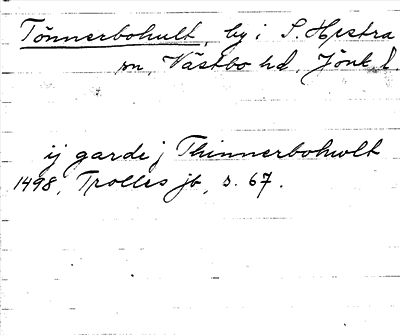 Tönnerbohult, by i S. Hestra
sn, Västbo hd, Jönk. l.
ij garde j Thinnerboholt
1498, Trolles jb, s. 67.